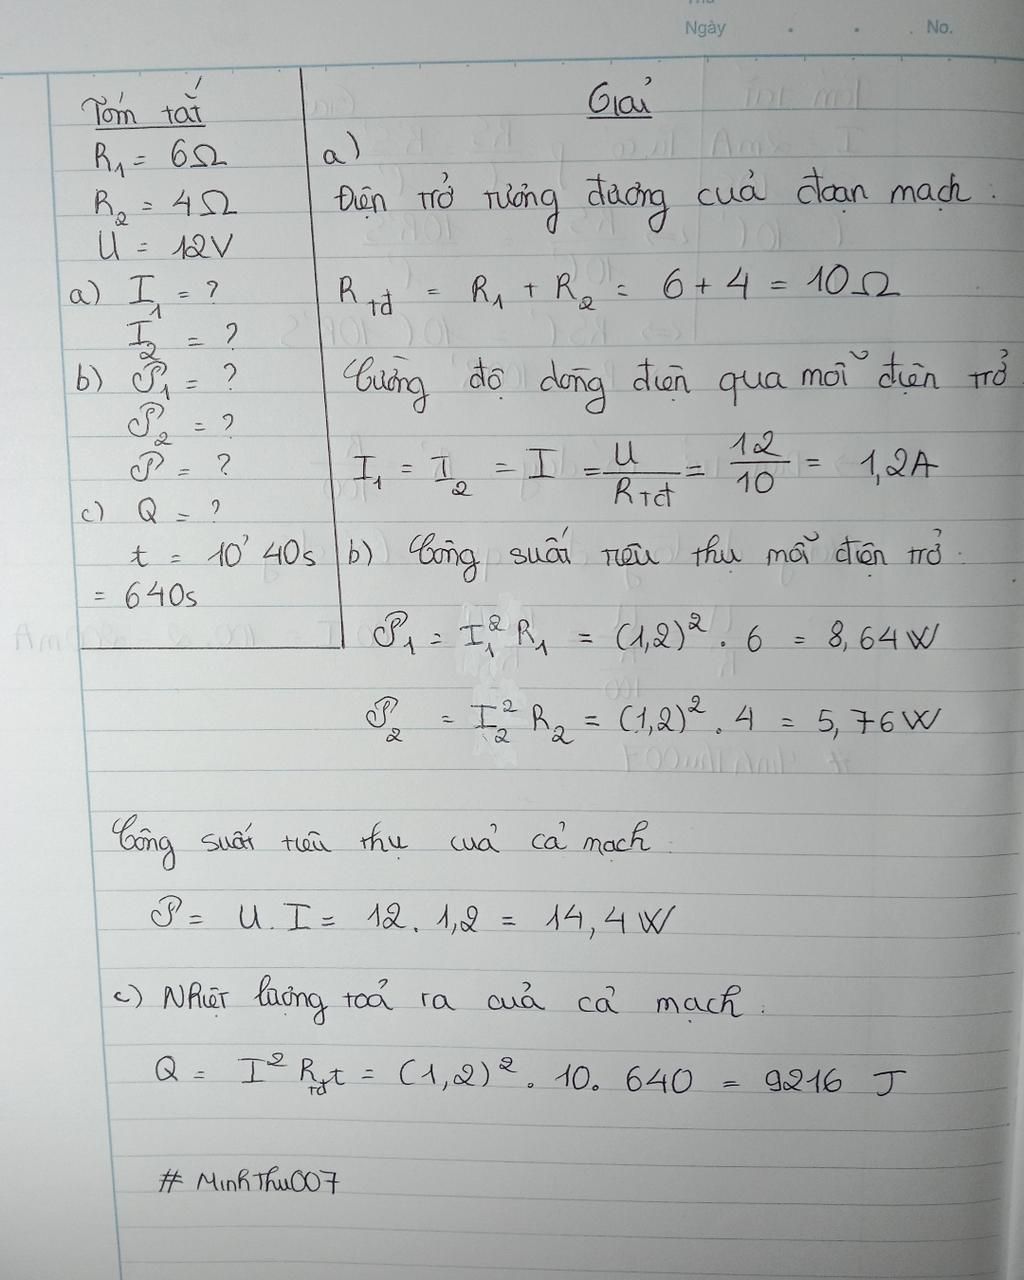 Thứ
Ngày . . . No.
Tóm tắt
R1 = 6Ω
R2 = 4Ω
U = 12V
a) I1 = ?
I2 = ?
b) P1 = ?
P2 = ?
P = ?
c) Q = ?
t = 10' 40s
= 640s
Giải
a)
Điện trở tương đương của đoạn mạch :
Rtđ = R1 + R2 = 6 + 4 = 10Ω
Cường độ dòng điện qua mỗi điện trở
I1 = I2 = I = U/Rtđ = 12/10 = 1,2A
b) Công suất tiêu thụ mỗi điện trở :
P1 = I1² R1 = (1,2)² . 6 = 8,64W
P2 = I2² R2 = (1,2)² . 4 = 5,76W
Công suất tiêu thụ của cả mạch :
P = U . I = 12 . 1,2 = 14,4W
c) Nhiệt lượng toả ra của cả mạch :
Q = I² Rtđ t = (1,2)² . 10 . 640 = 9216 J
# MinhThu007